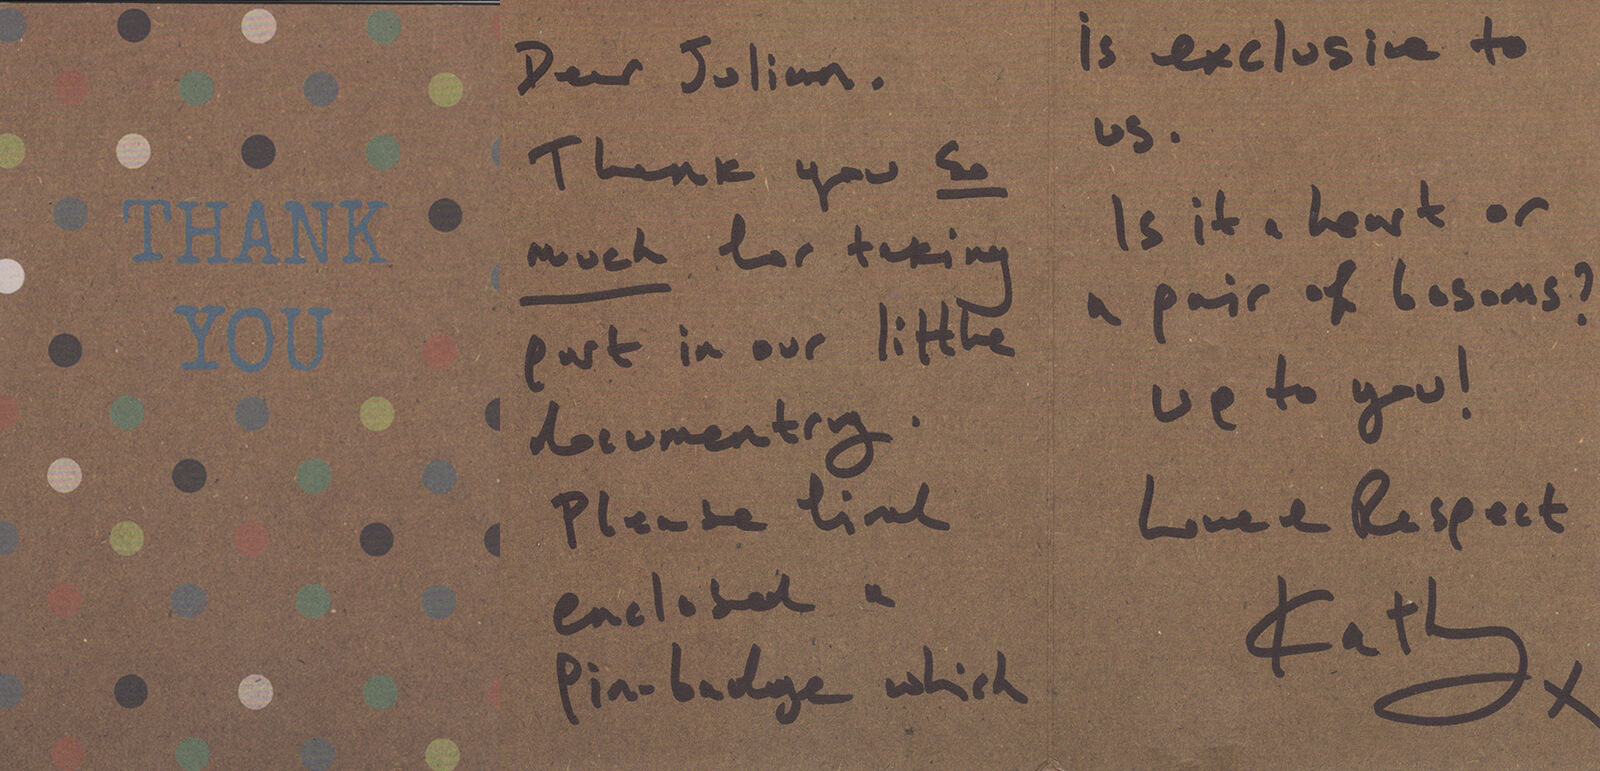 THANK
YOU
Dear Julian.
Thank you so
much for taking
part in our little
documentry.
Please find
enclosed a
Pin-badge which
is exclusive to
us.
Is it a heart or
a pair of bosoms?
up to you!
Love & Respect
Kathy x